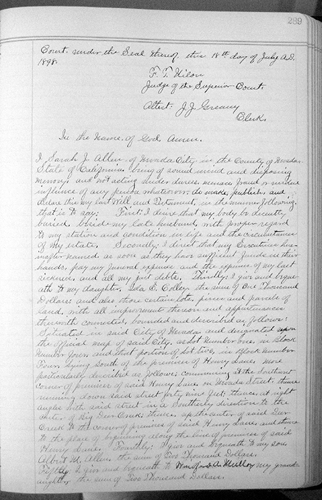 239
Court under the Seal thereof this 18th day of July A.D.
1898.
F. T. Nilon
Judge of the Superior Court
Attest J. J. Greany
Clerk
In the Name of God Amen.
I Sarah J. Allen of Nevada City in the County of Nevada
State of California being of sound mind and disposing
memory and not acting under duress menace fraud or undue
influence of any person whatsoever do make publish and
declare this my last Will and Testament in the manner following
that is to say: First I desire that my body be decently
buried beside my late husband with proper regard
to my station and condition in life and the circumstances
of my estate. Secondly I direct that my Executrix herein-
after named as soon as they have sufficient funds in their
hands, pay my funeral expenses and the expenses of my last
sickness and all my just debts. Thirdly I give and bequ-
eath to my daughter, the sum of One Thousand
Dollars and also those certain lots, pieces and parcels of
land, with all improvements thereon and appurtenances
thereunto connected, bounded and described as follows:
Situated in said City of Nevada and designated upon
the official map of said City, as Lot Number one in Block
Number four, and that portion of Lot two, in Block Number
Four lying south of the premises of Henry Lane more
particularly described as follows: commencing at the Southwest
corner of premises of said Henry Lane on Nevada Street: thence
running down said street forty nine feet: thence at right
angles with said street in a Southerly direction to the
center of Deer Creek: thence up the center of said Deer
Creek to the corner of premises of said Henry Lane and thence
to the place of beginning along the line of premises of said
Henry Lane. Fourthly: I give and bequeath to my son
Albert M. Allen the sum of Two Thousand Dollars.
Fifthly I give and bequeath to my grand
daughter the sum of Two Thousand Dollars.